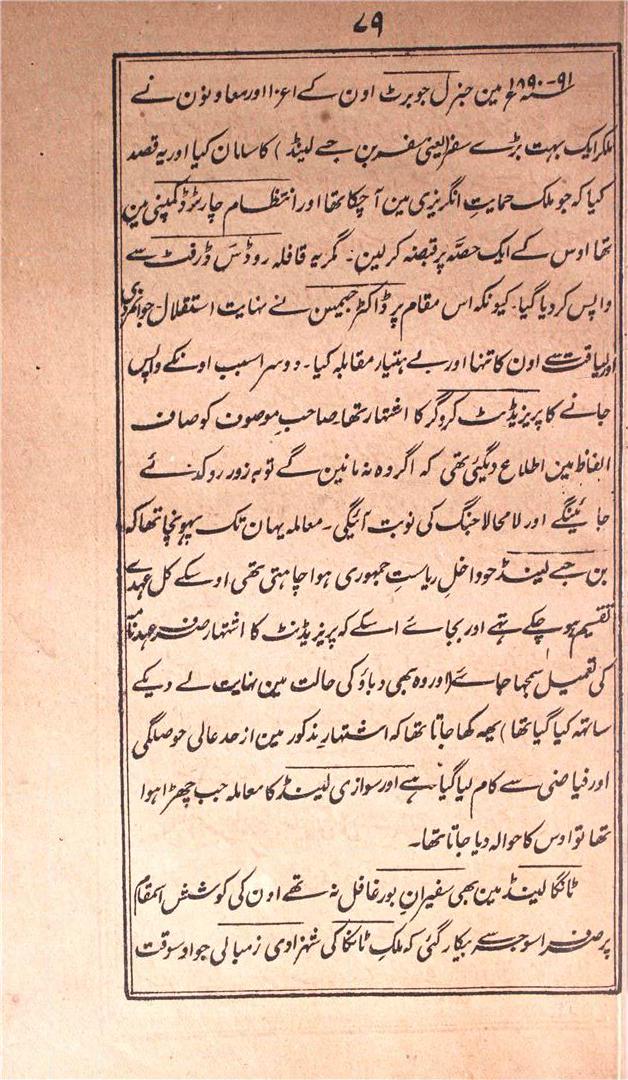 ۷۹
۹۱-۱۸۹۰ء مین جنرل جوبرٹ اون کے اعزا اور معاونون نے
ملکر ایک بہت بڑے سفر (یعنی سفر بن جے لینڈ) کا سامان کیا اور یہ قصد
کیا کہ جو ملک حمایتِ انگریزی مین آ چکا تھا اور انتظام چارٹرڈ کمپنی مین
تھا اوس کے ایک حصّہ پر قبضہ کر لین۔ مگر یہ قافلہ روڈس ڈرفٹ سے
واپس کر دیا گیا۔ کیونکہ اس مقام پر ڈاکٹر جیمسن نے نہایت استقلال جوانمردی
اور لیاقت سے اون کا تنہا اور بے ہتیار مقابلہ کیا۔ دوسرا سبب اونکے واپس
جانے کا پریزیڈنٹ کروگر کا اشتہار تھا۔ صاحب موصوف کو صاف
الفاظ مین اطلاع دیگئی تھی کہ اگر وہ نہ مانین گے تو بہ زور روکدئے
جائینگے اور لامحالا جنگ کی نوبت آئیگی۔ معاملہ یہان تک پہونچا تھا کہ
بن جے لینڈ جو داخلِ ریاستِ جمہوری ہوا چاہتی تھی اوسکے کل عہدے
تقسیم ہو چکے تہے اور بجائے اسکے کہ پریزیڈنٹ کا اشتہار صرف عہدنامہ
کی تعمیل سمجہا جائے (اور وہ بھی دباؤ کی حالت مین نہایت لے دیکے
ساتہہ کیا گیا تھا) یہہ کہا جاتا تھا کہ اشتہارِ مذکور مین از حد عالی حوصلگی
اور فیاضی سے کام لیا گیا ہے اور سوازی لینڈ کا معاملہ جب چھڑا ہوا
تھا تو اوس کا حوالہ دیا جاتا تھا۔
ٹانگا لینڈ مین بھی سفیرانِ بور غافل نہ تھے اون کی کوشش اسمقام
پر صرف اسوجہ سے بیکار گئی کہ ملکِ ٹانگا کی شہزادی زمبالی جو اوسوقت